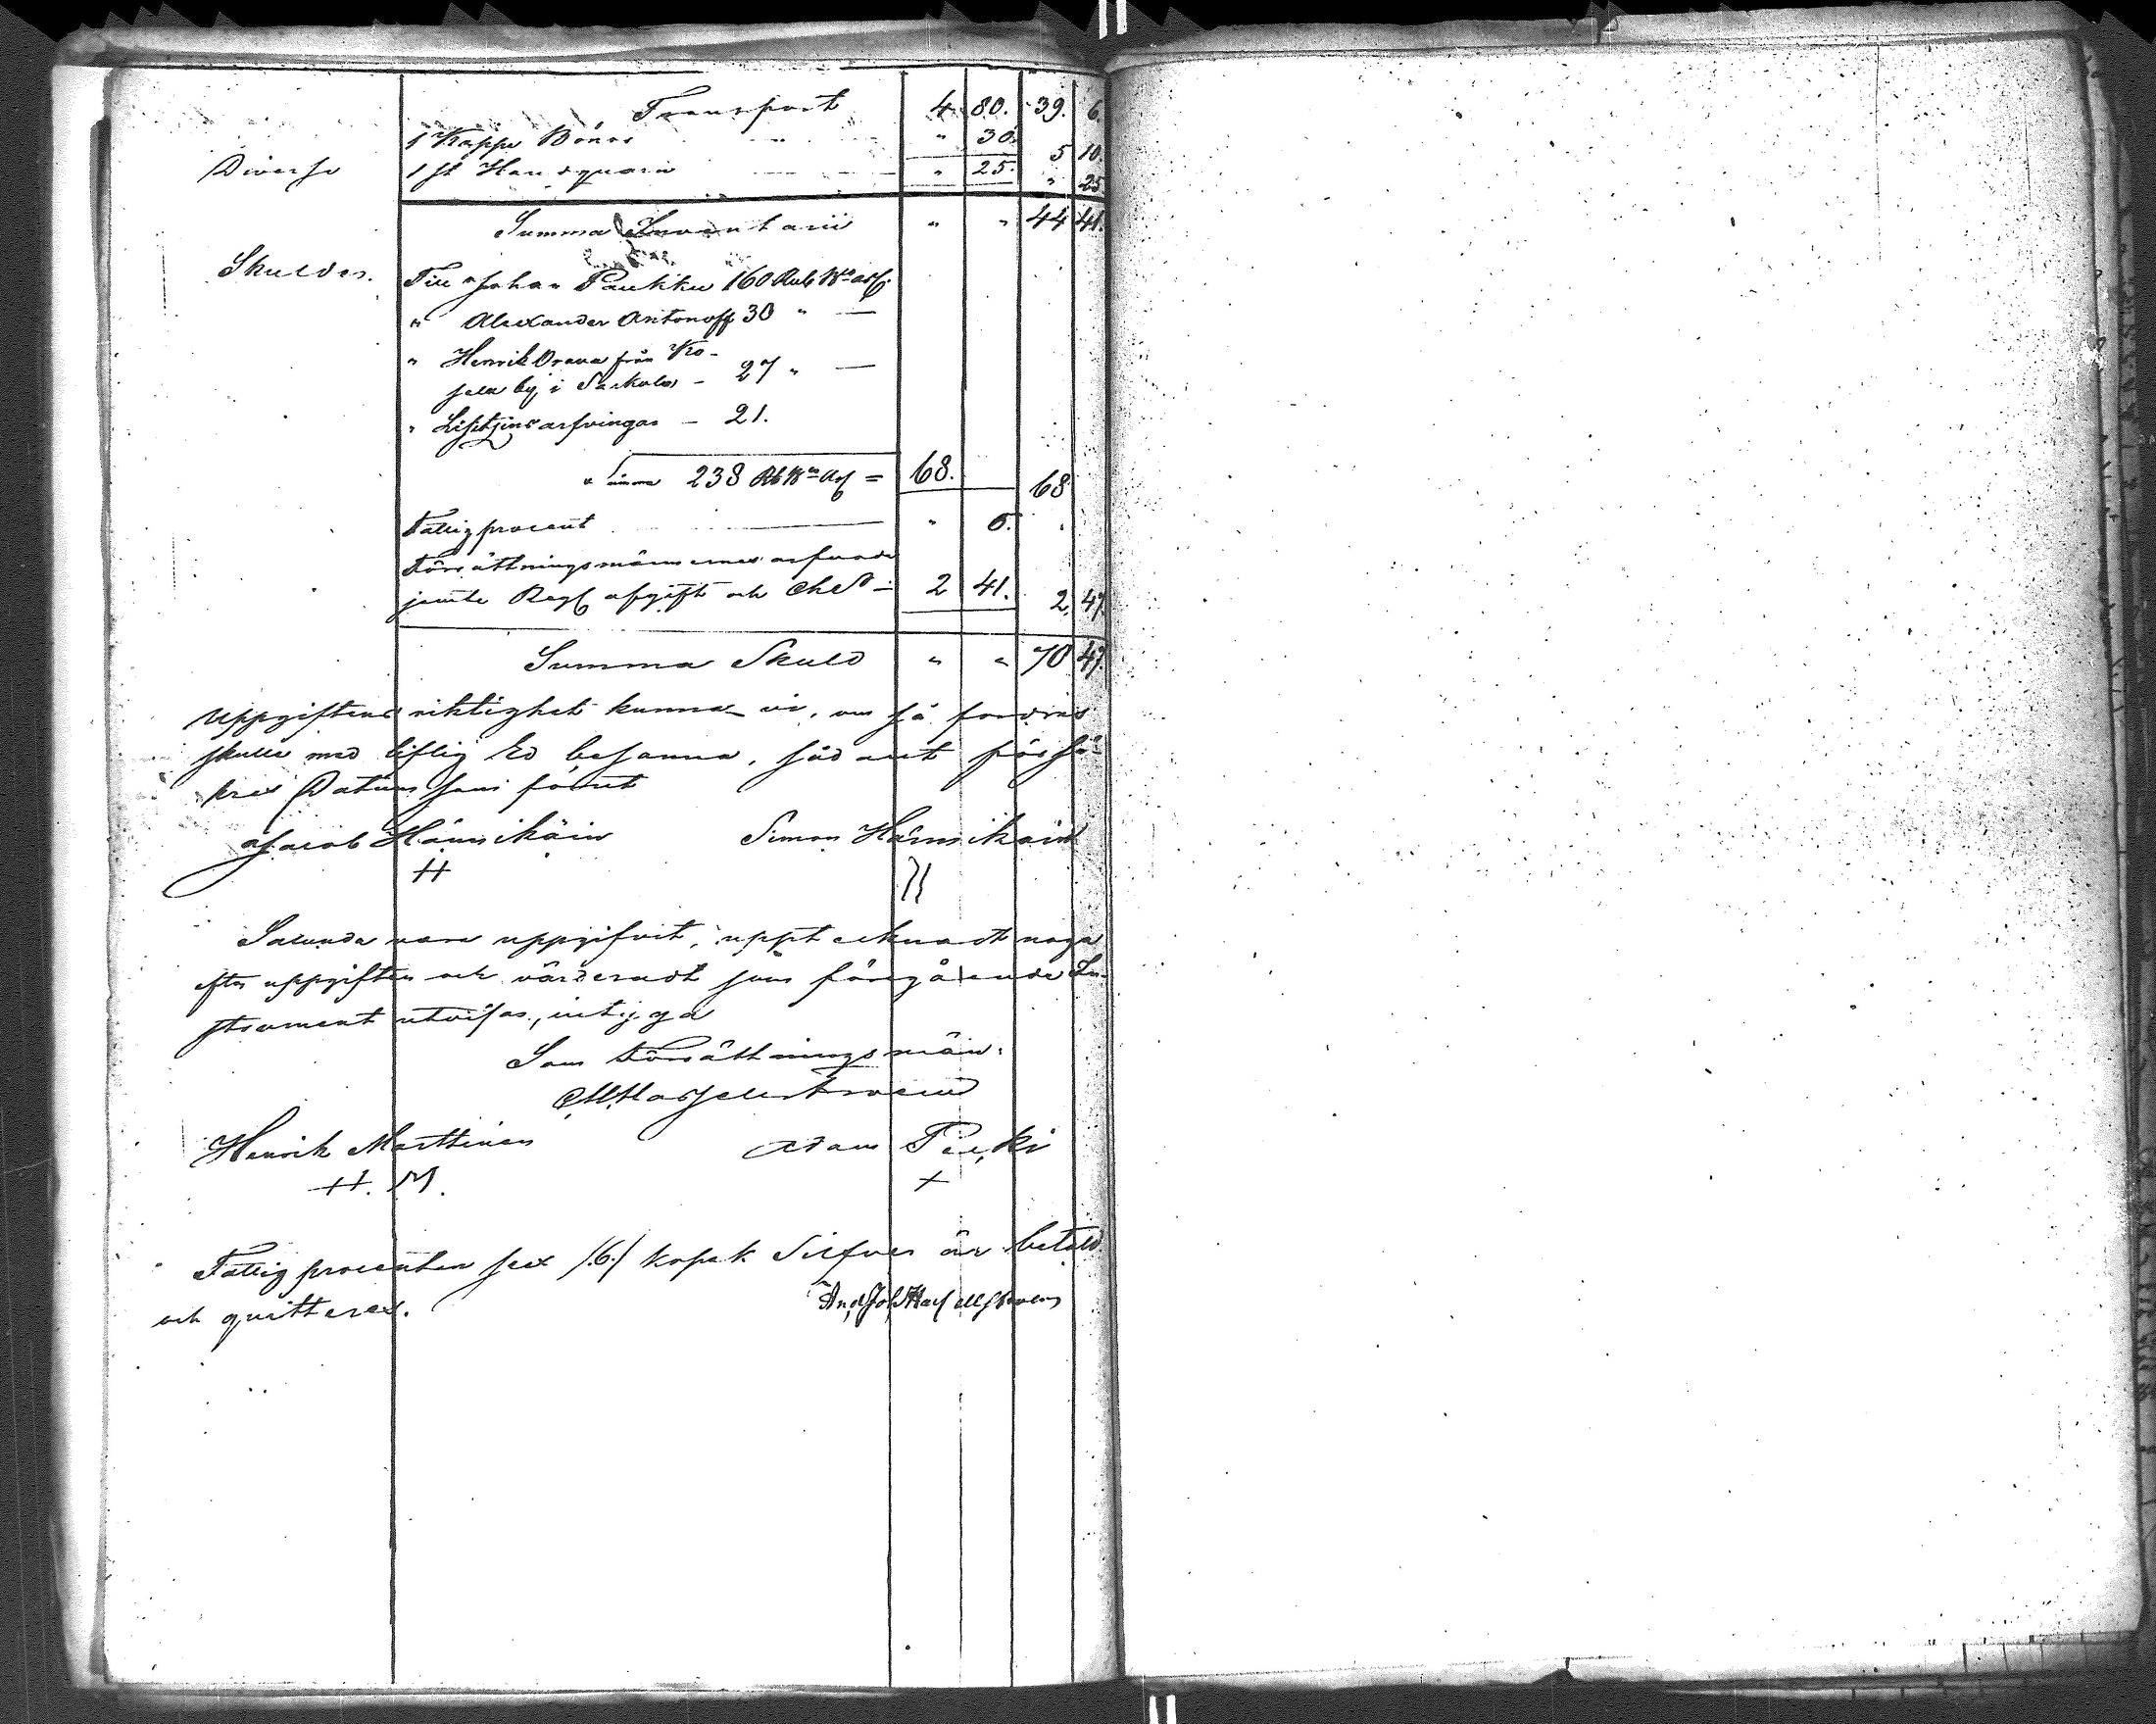 Transport 4 80. 39. 6.
1 Kappe Bönor " 30. 5 10.
Diverse 1 st Handqvarn " 25. " 25
Summa Inventarii " " 44 41.
Skulder. Till Johan Paukku 160 Rub Bco Ass.
" Alexander Antonoff 30 " —
" Henrik Orava från Ko-
sela by i Sakkola - 27 " —
" arfvingar - 21.
Summa 238 Rb Bco Ass = 68. 68
Fattigprocent " 6. "
Förrättningsmännernes arfvode
jemte Regl afgift och Ch. S. - 2 41. 2. 47.
Summa Skuld " " 70 47.
Uppgiftens riktighet kunna vi, om så fordras
skulle med liflig Ed besanna, sådant försä-
kras Datum som förut
Jacob Hännikäin Simon Hännikäin
H
Sålunda vara uppgifvit, upptecknadt noga
efter uppgiften och värderadt som föregående In-
strument utvisar, intyga
Som Förrättningsmän.
Henrik Marttinen Adam Pirki
H. M. +
Fattigprocenten sex /.6./ kopek Silfver är betald
och qvitteras.